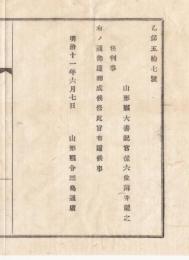 乙第五拾七號
山形縣大書記官從六位薄井龍之
任判事
右ノ通御達相成候條此旨布達候事
明治十一年六月七日
山形縣令三島通庸